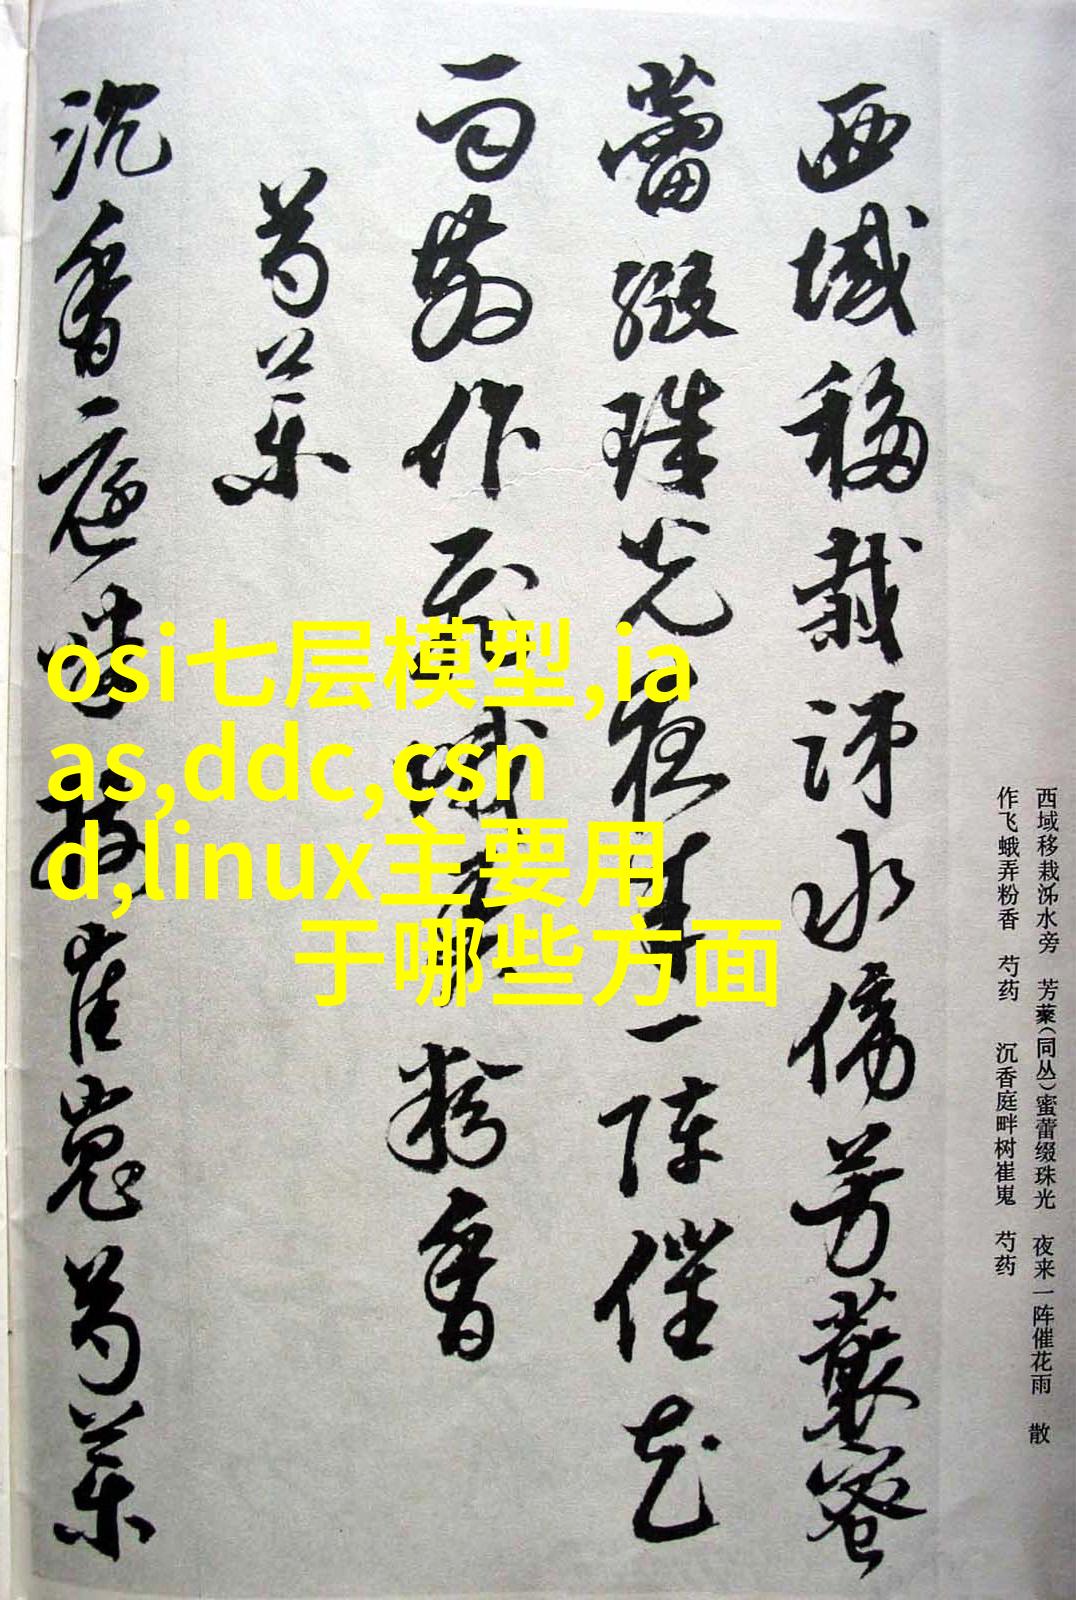 西域移栽泺水傍芳藂蜜
蕾缀珠光夜来一阵催花
雨散作飞蛾弄粉香
芍药
沉香庭畔树崔嵬芍药
osi七层模型,ia
as,ddc,csn
d,linux主要用
于哪些方面
西域移栽泺水旁 芳藂(同丛)蜜蕾缀珠光 夜来一阵催花雨 散
作飞蛾弄粉香 芍药 沉香庭畔树崔嵬 芍药